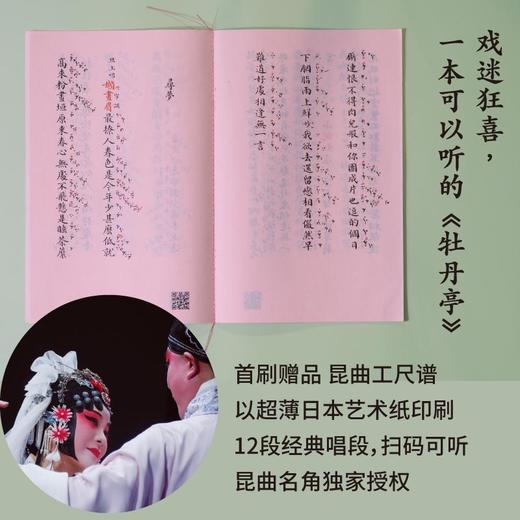 戏迷狂喜，
一本可以听的《牡丹亭》
廝連恨不得肉兒般和你團成片也逗的個日
下胭脂雨上鮮我欲去還留戀相看儼然早
難道好處相逢無一言
尋夢
旦上唱 懶畫眉 最撩人春色是今年少甚麼低就
高來粉畫垣原來春心無處不飛懸是睡荼蘼
首刷赠品 昆曲工尺谱
以超薄日本艺术纸印刷
12段经典唱段，扫码可听
昆曲名角独家授权